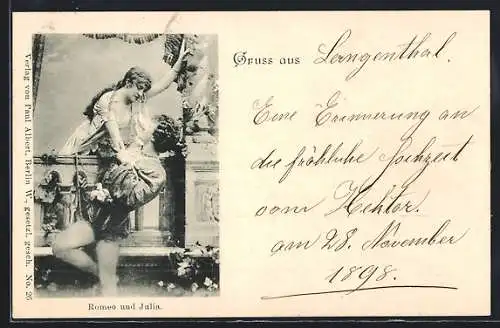 Verlag von Paul Albert, Berlin W., gesetzl. gesch. No. 26
Romeo und Julia.
Gruss aus Langenthal.
Eine Erinnerung an
die fröhliche Hochzeit
vom Hektor.
am 28. November
1898.